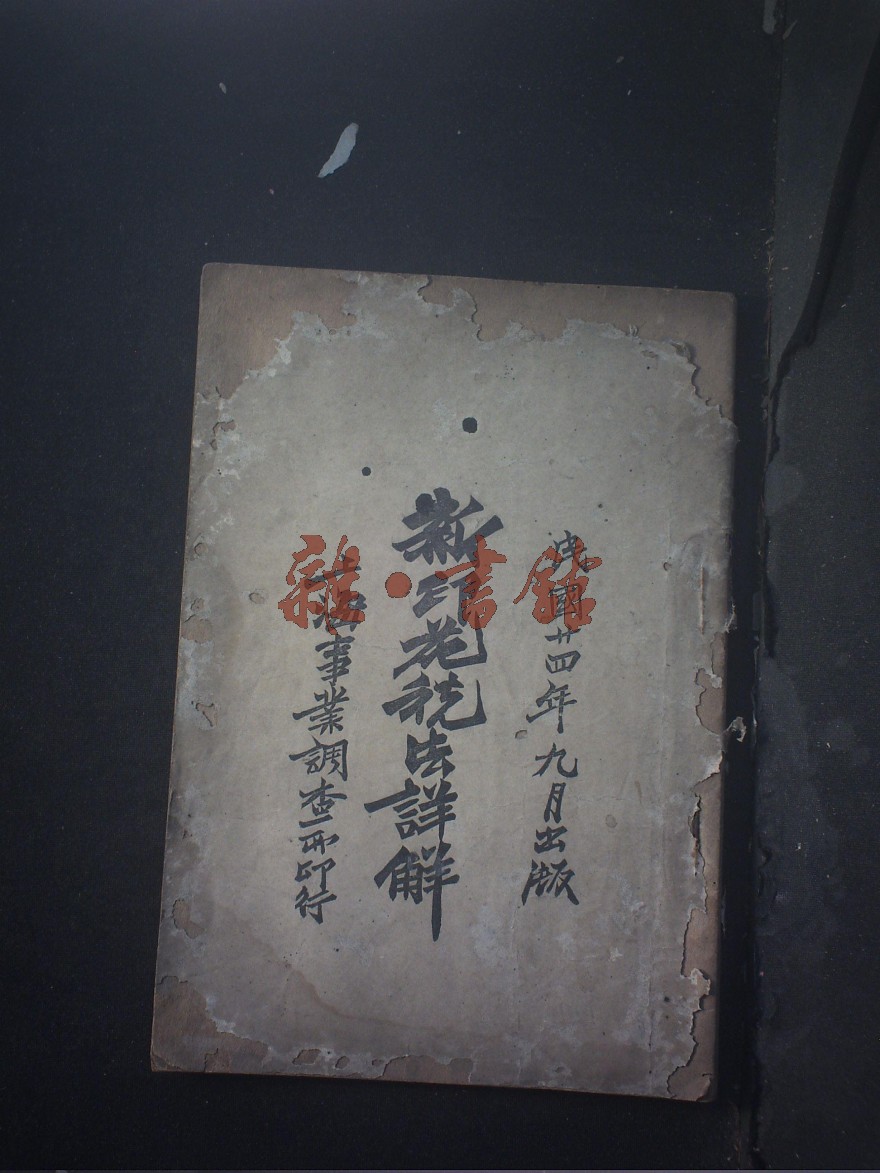 民國廿四年九月出版
新印花税法詳解
事業調查所印行
雜·書館